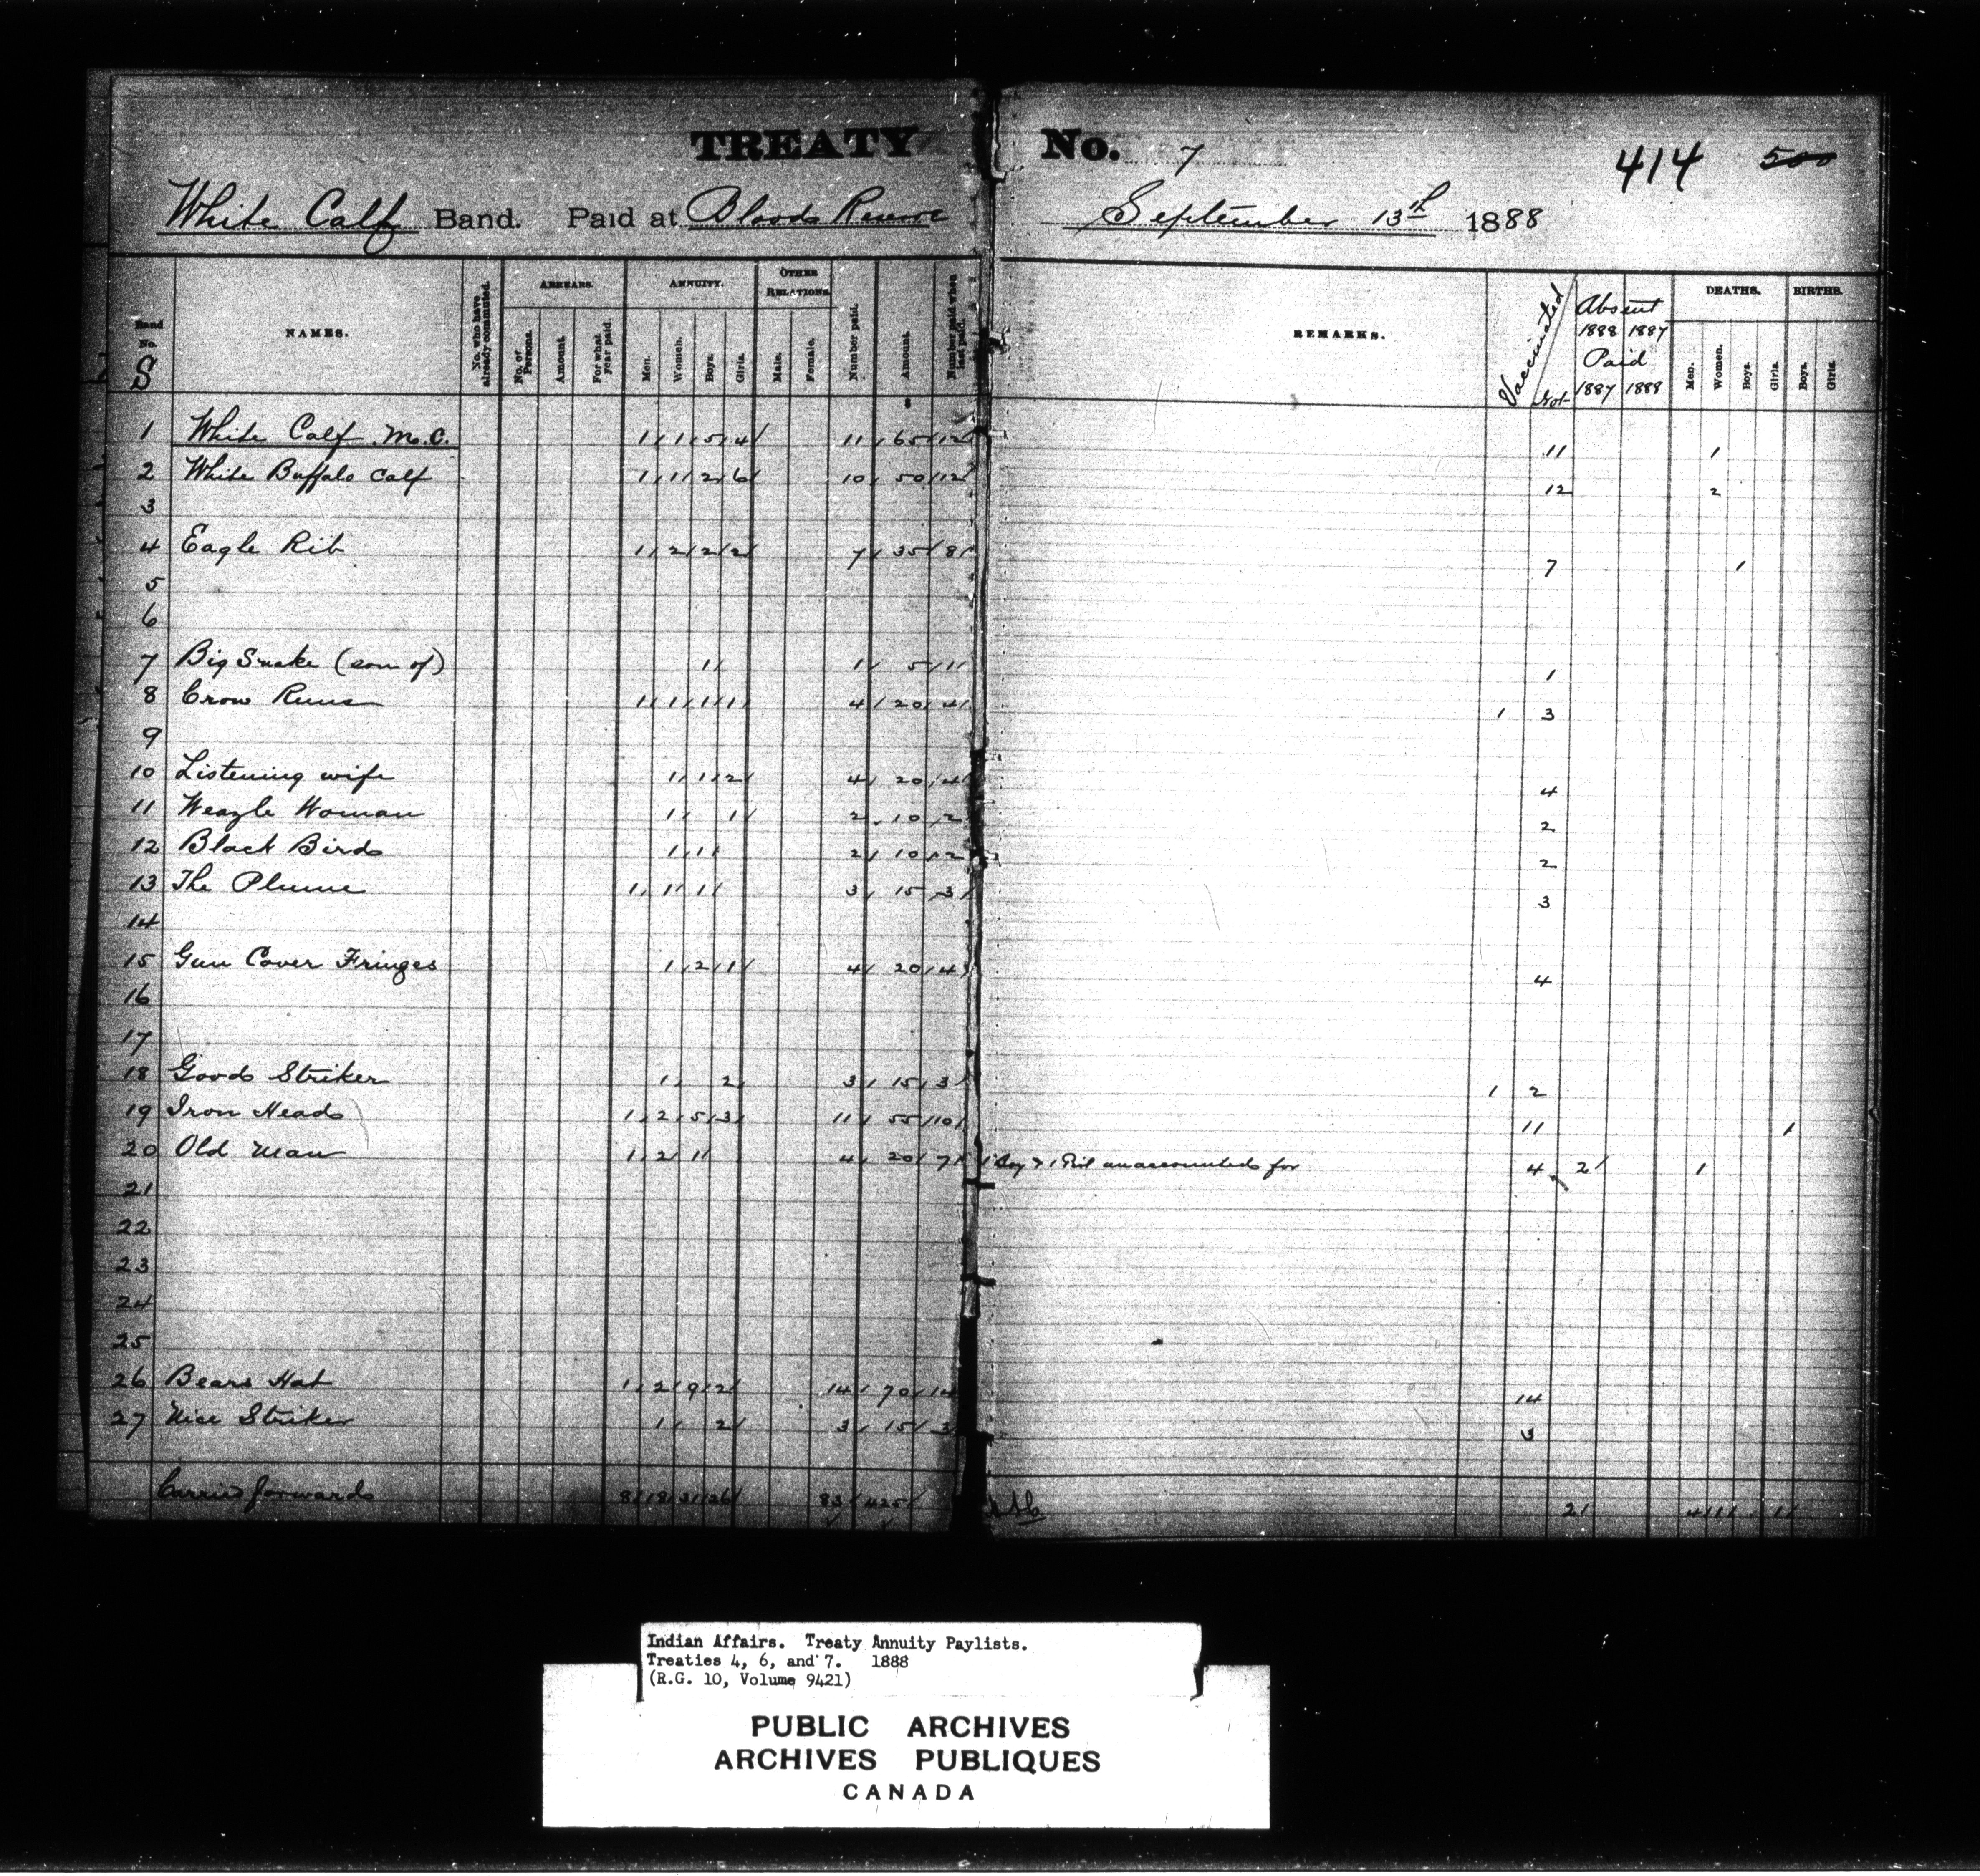 TREATY No. 7 414 500
White Calf Band. Paid at Blood Reserve September 13th 1888
Band No. S NAMES. No. who have already commuted. ARREARS. No. of Persons. Amount. For what year paid. ANNUITY. Men. Women. Boys. Girls. OTHER RELATIONS. Male. Female. Number paid. Amount. Number paid when last paid. REMARKS. Vaccinated / Not Absent 1888 1887 Paid 1887 1888 DEATHS. Men. Women. Boys. Girls. BIRTHS. Boys. Girls.
$
1 White Calf M.C. 1 1 5 4 11 65 12 11 1
2 White Buffalo Calf 1 1 2 6 10 50 12 12 2
3
4 Eagle Rib 1 2 2 2 7 35 8 7 1
5
6
7 Big Snake (son of) 1 1 5 1 1
8 Crow Runs 1 1 1 1 4 20 4 1 3
9
10 Listening wife 1 1 2 4 20 4 4
11 Weazle Woman 1 1 2 10 2 2
12 Black Bird 1 1 2 10 2 2
13 The Plume 1 1 1 3 15 3 3
14
15 Gun Cover Fringes 1 2 1 4 20 4 4
16
17
18 Good Striker 1 2 3 15 3 1 2
19 Iron Head 1 2 5 3 11 55 10 11 1
20 Old Man 1 2 1 4 20 7 1 Boy & 1 Girl unaccounted for 4 2 1
21
22
23
24
25
26 Bears Hat 1 2 9 2 14 70 14 14
27 Nice Striker 1 2 3 15 3 3
Carried forward 8 18 31 26 83 425 2 4 1 1
Indian Affairs. Treaty Annuity Paylists.
Treaties 4, 6, and 7. 1888
(R.G. 10, Volume 9421)
PUBLIC ARCHIVES
ARCHIVES PUBLIQUES
CANADA